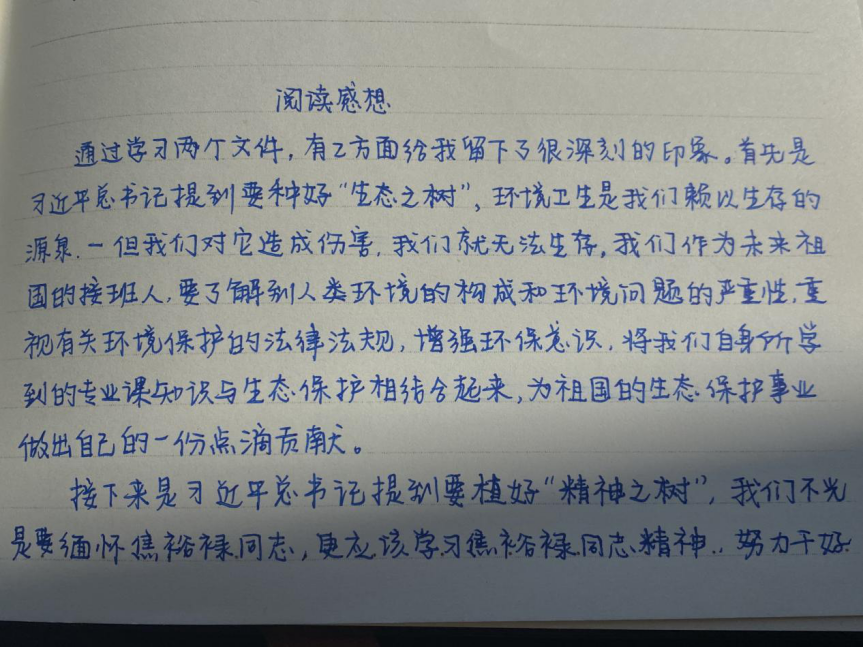 阅读感想
通过学习两个文件，有2方面给我留下了很深刻的印象。首先是
习近平总书记提到要种好“生态之树”，环境卫生是我们赖以生存的
源泉.一但我们对它造成伤害，我们就无法生存，我们作为未来祖
国的接班人，要了解到人类环境的构成和环境问题的严重性，重
视有关环境保护的法律法规，增强环保意识，将我们自身所学
到的专业课知识与生态保护相结合起来，为祖国的生态保护事业
做出自己的一份点滴贡献。
接下来是习近平总书记提到要植好“精神之树”，我们不光
是要缅怀焦裕禄同志，更应该学习焦裕禄同志精神..努力干好